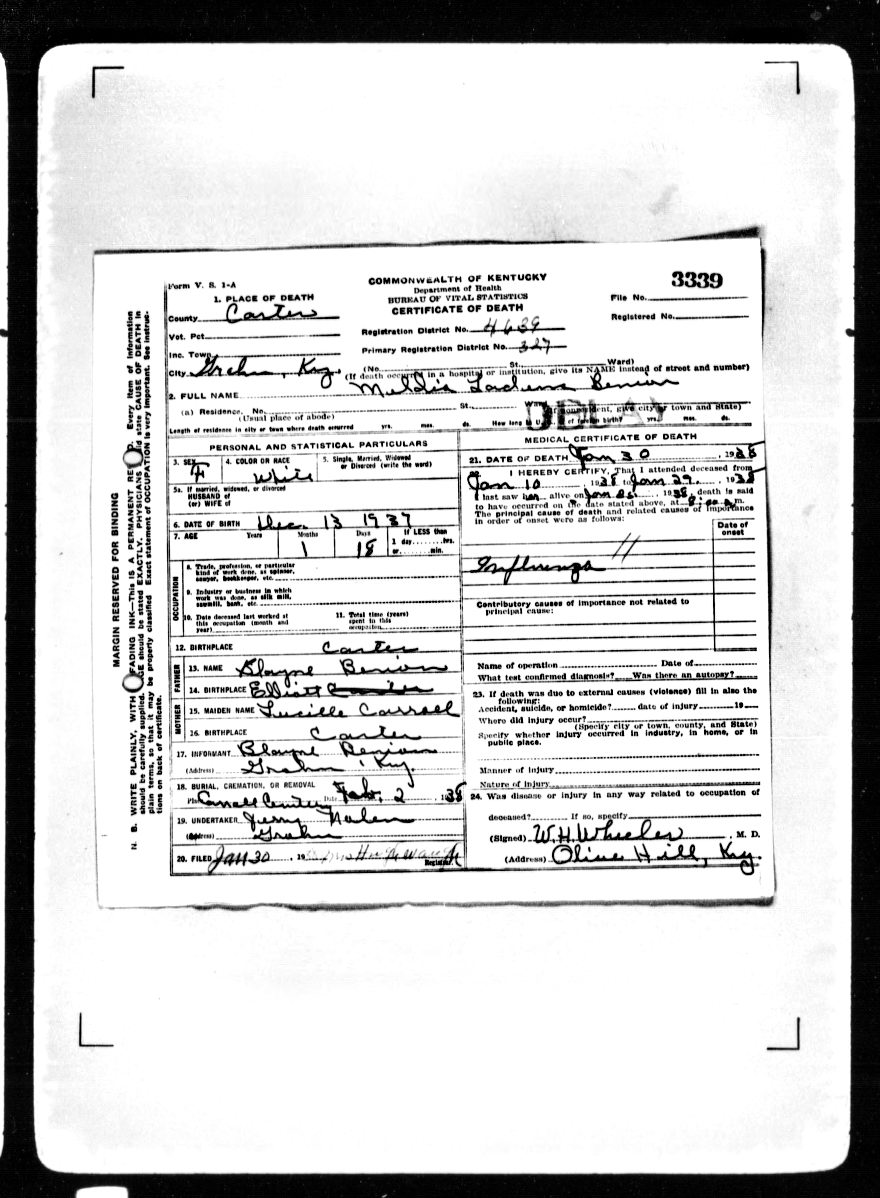 Form V. S. 1-A
COMMONWEALTH OF KENTUCKY
Department of Health
BUREAU OF VITAL STATISTICS
CERTIFICATE OF DEATH
3339
File No.
Registered No.
1. PLACE OF DEATH
County Carter
Registration District No. 4639
Vot. Pct.
Primary Registration District No. 327
Inc. Town
City Grahn, Ky. (No. St., Ward)
(If death occurred in a hospital or institution, give its NAME instead of street and number)
2. FULL NAME
(a) Residence. No. St., Ward
(Usual place of abode) (If nonresident, give city or town and State)
DELAY
Length of residence in city or town where death occurred yrs. mos. ds. How long in U. S., if of foreign birth? yrs. mos. ds.
PERSONAL AND STATISTICAL PARTICULARS
3. SEX F
4. COLOR OR RACE White
5. Single, Married, Widowed or Divorced (write the word)
5a. If married, widowed, or divorced
HUSBAND of
(or) WIFE of
6. DATE OF BIRTH Dec. 13 1937
7. AGE Years Months Days If LESS than
1 day, hrs.
or min.
1 18
OCCUPATION
8. Trade, profession, or particular
kind of work done, as spinner,
sawyer, bookkeeper, etc.
9. Industry or business in which
work was done, as silk mill,
sawmill, bank, etc.
10. Date deceased last worked at
this occupation (month and
year)
11. Total time (years)
spent in this
occupation
12. BIRTHPLACE Carter
FATHER
13. NAME Blayne
14. BIRTHPLACE Elliott
MOTHER
15. MAIDEN NAME Lucille Carroll
16. BIRTHPLACE Carter
17. INFORMANT Blayne
(Address) Grahn, Ky.
18. BURIAL, CREMATION, OR REMOVAL
Date Feb. 2 1938
19. UNDERTAKER
(Address) Grahn
20. FILED Jan 30, 19
Registrar.
MEDICAL CERTIFICATE OF DEATH
21. DATE OF DEATH Jan 30, 1938
I HEREBY CERTIFY, That I attended deceased from
Jan 10 1938 to Jan 29, 1938
I last saw her alive on Jan, 1938, death is said
to have occurred on the date stated above, at m.
The principal cause of death and related causes of importance
in order of onset were as follows:
Date of
onset
Influenza 11
Contributory causes of importance not related to
principal cause:
Name of operation Date of
What test confirmed diagnosis? Was there an autopsy?
23. If death was due to external causes (violence) fill in also the
following:
Accident, suicide, or homicide? date of injury 19
Where did injury occur?
(Specify city or town, county, and State)
Specify whether injury occurred in industry, in home, or in
public place.
Manner of injury
Nature of injury
24. Was disease or injury in any way related to occupation of
deceased? If so, specify
(Signed) W. H. Wheeler, M. D.
(Address) Olive Hill, Ky.
MARGIN RESERVED FOR BINDING
N. B. WRITE PLAINLY, WITH FADING INK—This is A PERMANENT RE D. Every item of information
should be carefully supplied. AGE should be stated EXACTLY. PHYSICIANS should state CAUSE OF DEATH in
plain terms, so that it may be properly classified. Exact statement of OCCUPATION is very important. See instruc-
tions on back of certificate.